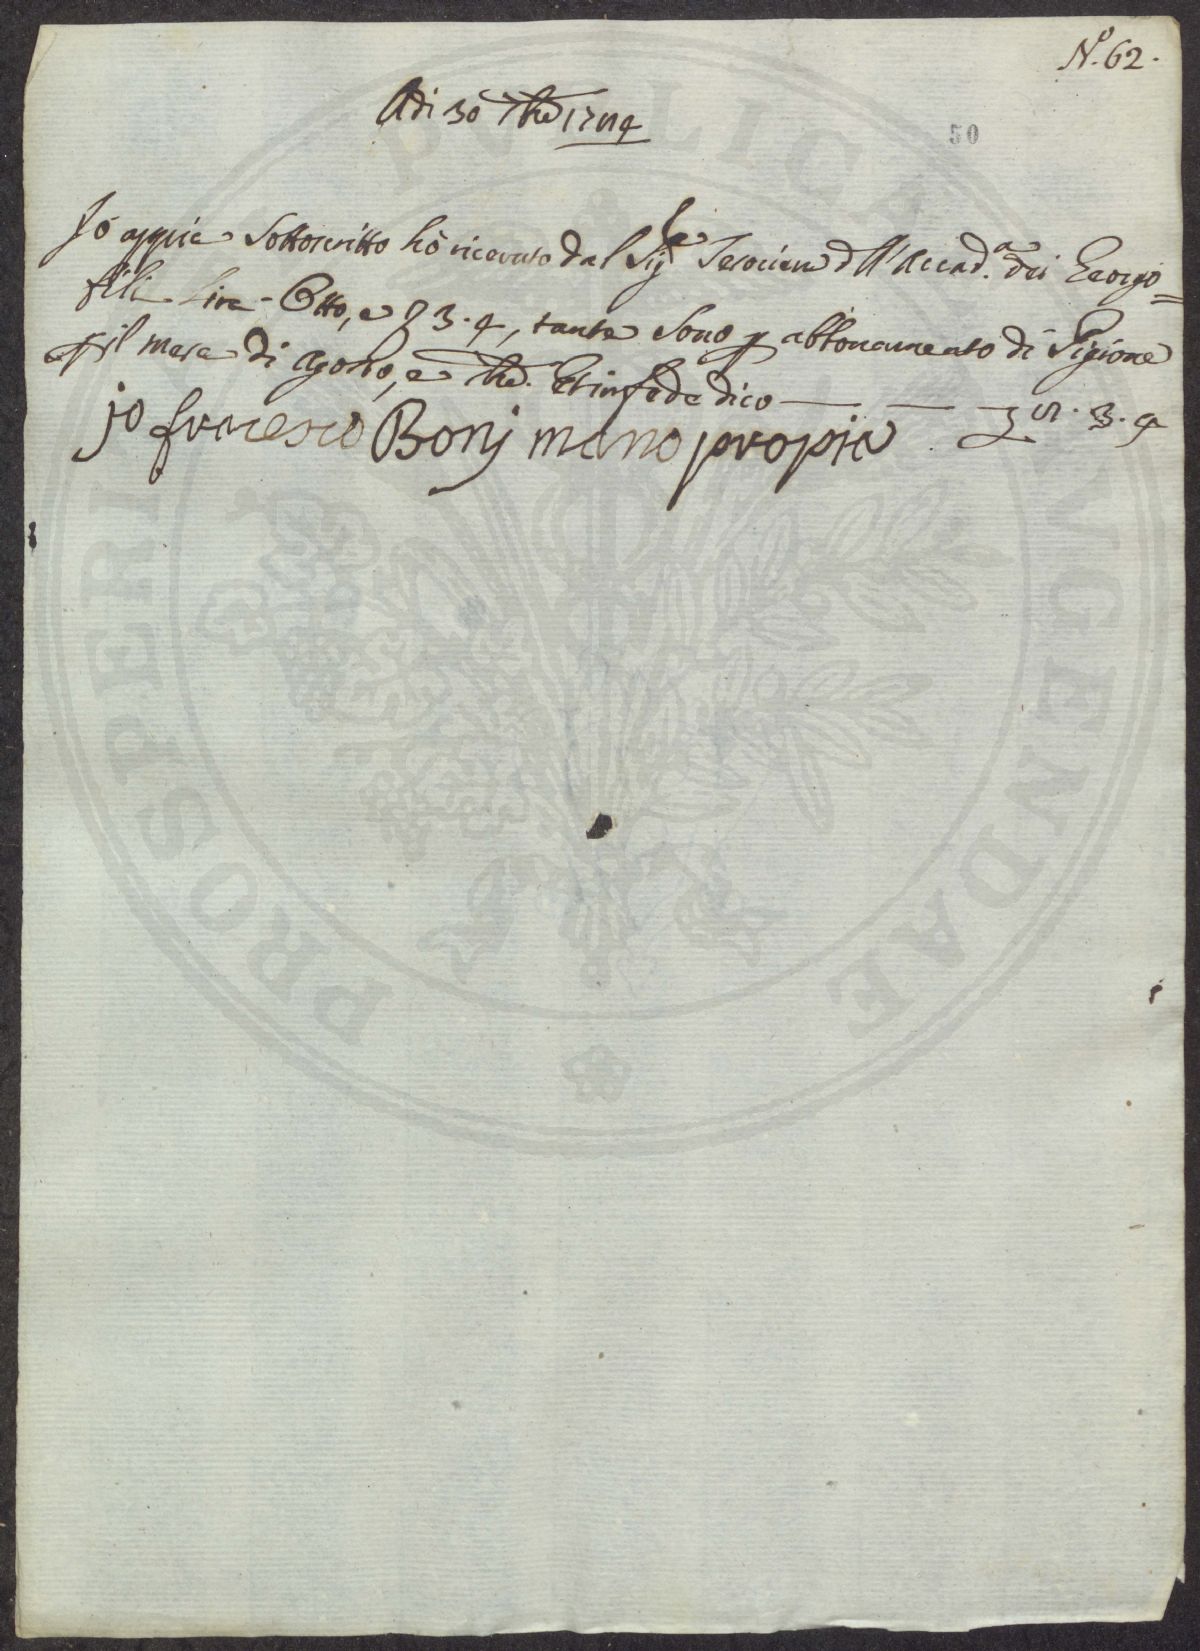 N.º 62.
Adi 30 7bre 1784
50
Io appiè Sottoscritto hò ricevuto dal Sig.re Tesoriere dll' Accad.a dei Georgo=
fili Lire Otto, e ƒ 3.4, tante Sono p abbonamento di Pigione
p il mese di Agosto, e 7bre. Et in fede dico — — £ 8. 3. 4
jo francesco Bonj mano propria
PROSPERITATI PUBLICAE AUGENDAE